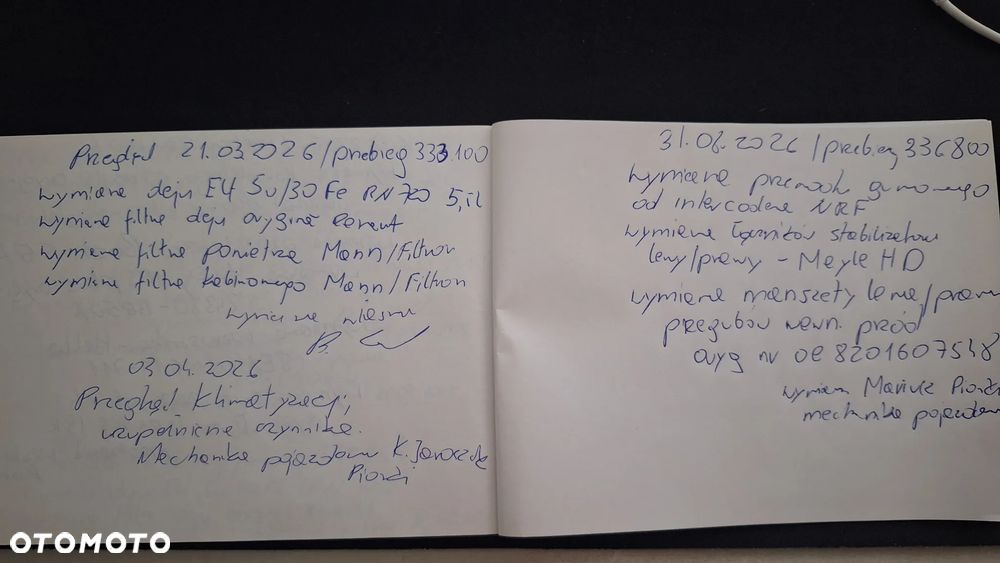 Przegląd 21.03.2026/przebieg 333.100
wymiana oleju E4 5W/30 Fe RN 720 5,1l
wymiana filtra oleju oryginał Renault
wymiana filtra powietrza Mann/Filtron
wymiana filtra kabinowego Mann/Filtron
wymiana własna
03.04.2026
Przegląd klimatyzacji,
uzupełnienie czynnika.
Mechanika pojazdowa K. Jaroszek
Pionki
31.08.2026/przebieg 336800
wymiana przewodu gumowego
od intercoolera NRF
wymiana łączników stabilizatora
lewy/prawy - Meyle HD
wymiana manszety lewa/prawa
przegubów wewn. przód
oryg nr oe 8201607548
wymiana Mariusz Pionki
mechanika pojazdowa
OTOMOTO